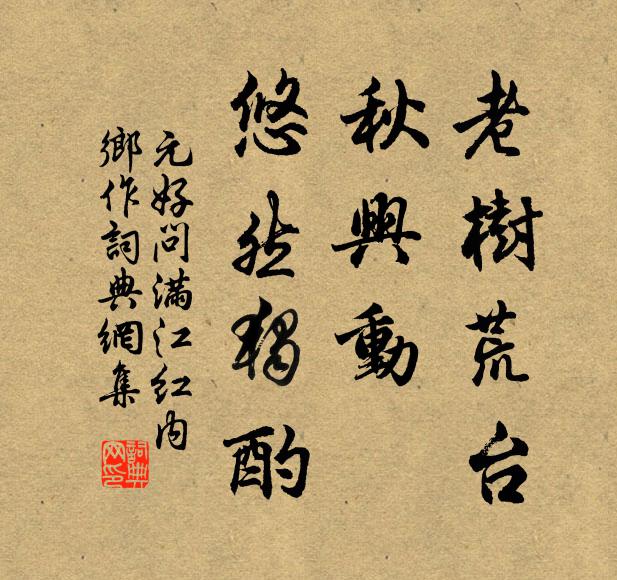 老樹荒台
秋興動
悠然獨酌
元好问满江红内
鄉作詞典網集
詞典网印